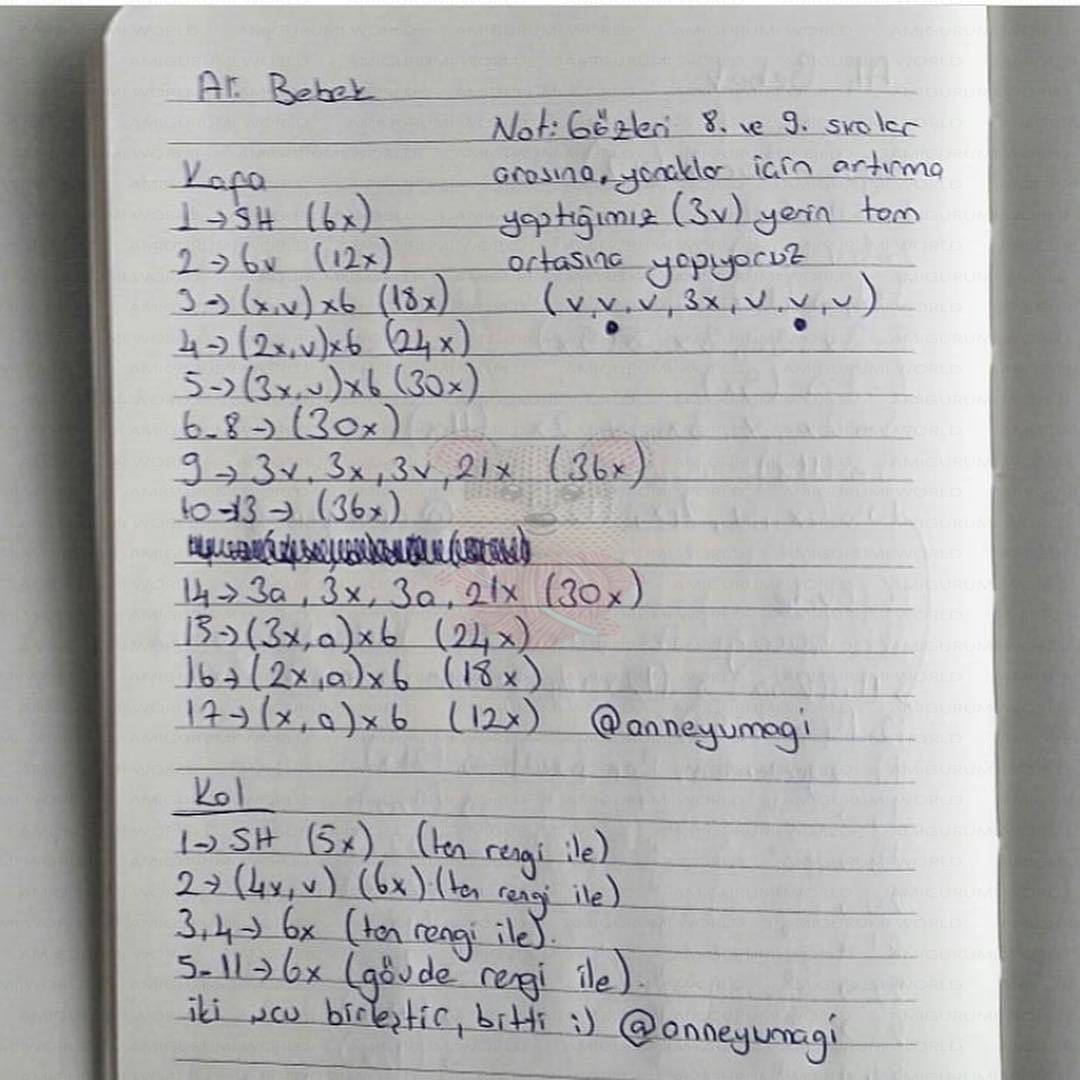 At Bebek
Not: Gözleri 8. ve 9. sıralar
arasına, yanaklar için artırma
yaptığımız (3v) yerin tam
ortasına yapıyoruz
(v,v,v,3x,v,v,v)
Kafa
1→SH (6x)
2→6v (12x)
3→(x,v)x6 (18x)
4→(2x,v)x6 (24x)
5→(3x,v)x6 (30x)
6-8→(30x)
9→3v, 3x, 3v, 21x (36x)
10-13→(36x)
14→3a, 3x, 3a, 21x (30x)
15→(3x,a)x6 (24x)
16→(2x,a)x6 (18x)
17→(x,a)x6 (12x) @anneyumagi
Kol
1→SH (5x) (ten rengi ile)
2→(4x,v) (6x).(ten rengi ile)
3,4→6x (ten rengi ile).
5-11→6x (gövde rengi ile).
iki ucu birleştir, bitti :) @anneyumagi
AMIGURUMI WORLD